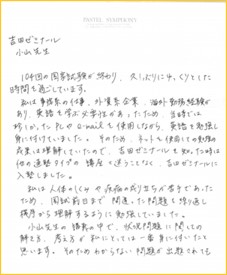 PASTEL SYMPHONY
吉田ゼミナール
小山先生
104回の国家試験が終わり、久しぶりにゆっくりとした
時間を過ごしています。
私は事務系の仕事、外資系企業、海外勤務経験が
あり、英語を学ぶ必要性があったため、当時では
珍しかったPCやe-mailを使用しながら、英語を勉強し
身に付けていました。そのため、ネットを使用しての勉強の
成果は理解していたので、吉田ゼミナールを知った時は
他の通塾タイプの講座に迷うことなく、吉田ゼミナールに
入塾しました。
私は人体のしくみや疾病の成り立ちが苦手であった
ため、国試前日まで間違った問題を掘り返し
根底から理解するように勉強していました。
小山先生の講義の中で、状況問題に関しての
解き方、考え方が私にとっては一番身に付いたと思い
ます。そのためわからない問題が出題されても